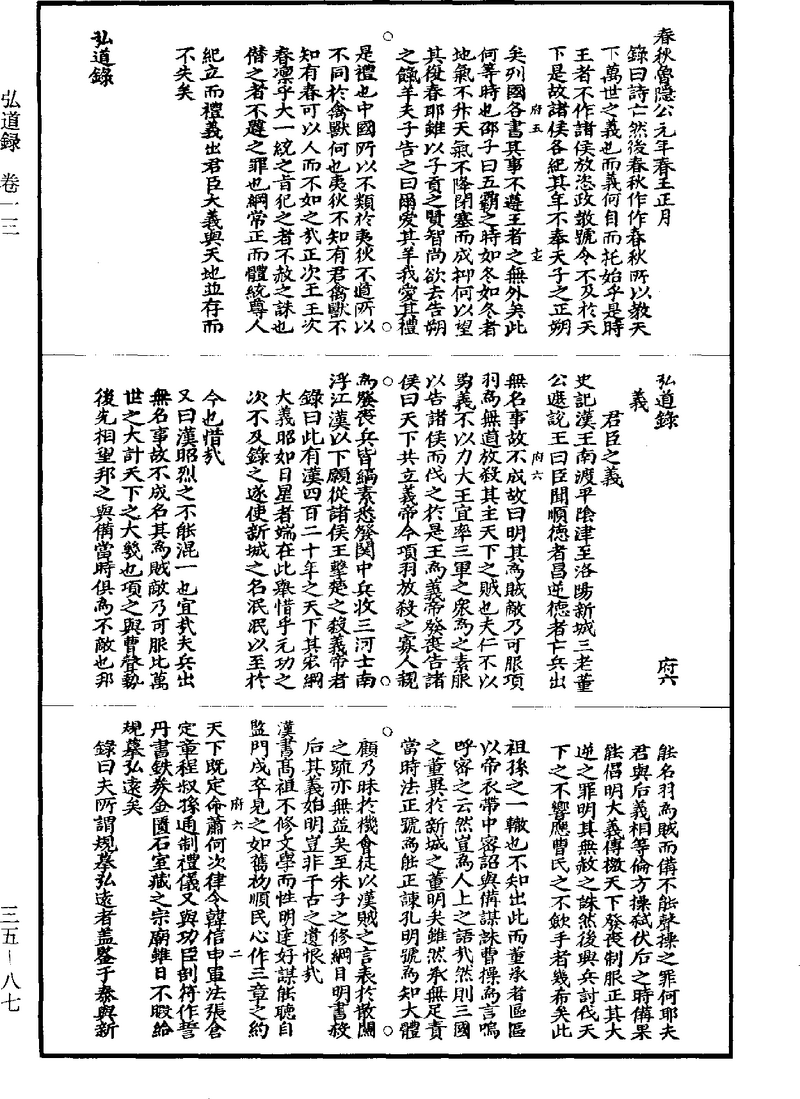 春秋魯隱公元年春王正月
錄曰詩亡然後春秋作作春秋所以教天
下萬世之義也而義何自而托始乎是時
王者不作諸侯放恣政敎號令不及於天
下是故諸侯各紀其年不奉天子之正朔
府五
矣列國各書其事不遵王者之無外矣此
何等時也邵子曰五霸之時如冬如冬者
地氣不升天氣不降閉塞而成抑何以望
其復春耶雖以子貢之賢智尚欲去告朔
之餼羊夫子告之曰爾愛其羊我愛其禮
是禮也中國所以不類於夷狄不道所以
不同於禽獸何也夷狄不知有君禽獸不
知有春可以人而不如之哉正次王王次
春凜乎大一統之旨犯之者不赦之誅也
僭之者不韙之罪也綱常正而體統尊人
紀立而禮義出君臣大義與天地並存而
不失矣
弘道錄
弘道錄
府六
義
君臣之義
史記漢王南渡平陰津至洛陽新城三老董
公遮說王曰臣聞順德者昌逆德者亡兵出
府六
無名事故不成故曰明其為賊敵乃可服項
羽為無道放殺其主天下之賊也夫仁不以
勇義不以力大王宜率三軍之衆為之素服
以告諸侯而伐之於是王為義帝發喪告諸
侯曰天下共立義帝今項羽放殺之寡人親
為發喪兵皆縞素悉發關中兵收三河士南
浮江漢以下願從諸侯王擊楚之殺義帝者
錄曰此有漢四百二十年之天下其宏綱
大義昭如日星者端在此舉惜乎元功之
次不及錄之遂使新城之名泯泯以至於
今也惜哉
又曰漢昭烈之不能混一也宜哉夫兵出
無名事故不成名其為賊敵乃可服此萬
世之大計天下之大幾也項之與曹聲勢
後先相望邦之與備當時俱為不敵也邦
能名羽為賊而備不能聲操之罪何耶夫
君與后義相等倫方操弒伏后之時備果
能倡明大義傳檄天下發喪制服正其大
逆之罪明其無赦之誅然後興兵討伐天
下之不響應曹氏之不歛手者幾希矣此
祖孫之一轍也不知出此而董承者區區
以帝衣帶中密詔與備謀誅曹操為言嗚
呼密之云然豈為人上之語哉然則三國
之董異於新城之董明矣雖然承無足責
當時法正號為能正諫孔明號為知大體
顧乃昧於機會徒以漢賊之言表於散關
之疏亦無益矣至朱子之修綱目明書殺
后其義始明豈非千古之遺恨哉
漢書高祖不修文學而性明達好謀能聽自
監門戍卒見之如舊初順民心作三章之約
府六
二
天下既定命蕭何次律令韓信申軍法張倉
定章程叔孫通制禮儀又與功臣剖符作誓
丹書鉄券金匱石室藏之宗廟雖日不暇給
規摹弘遠矣
錄曰夫所謂規摹弘遠者蓋鑒于秦與新
弘道録　卷一三
三五-八七